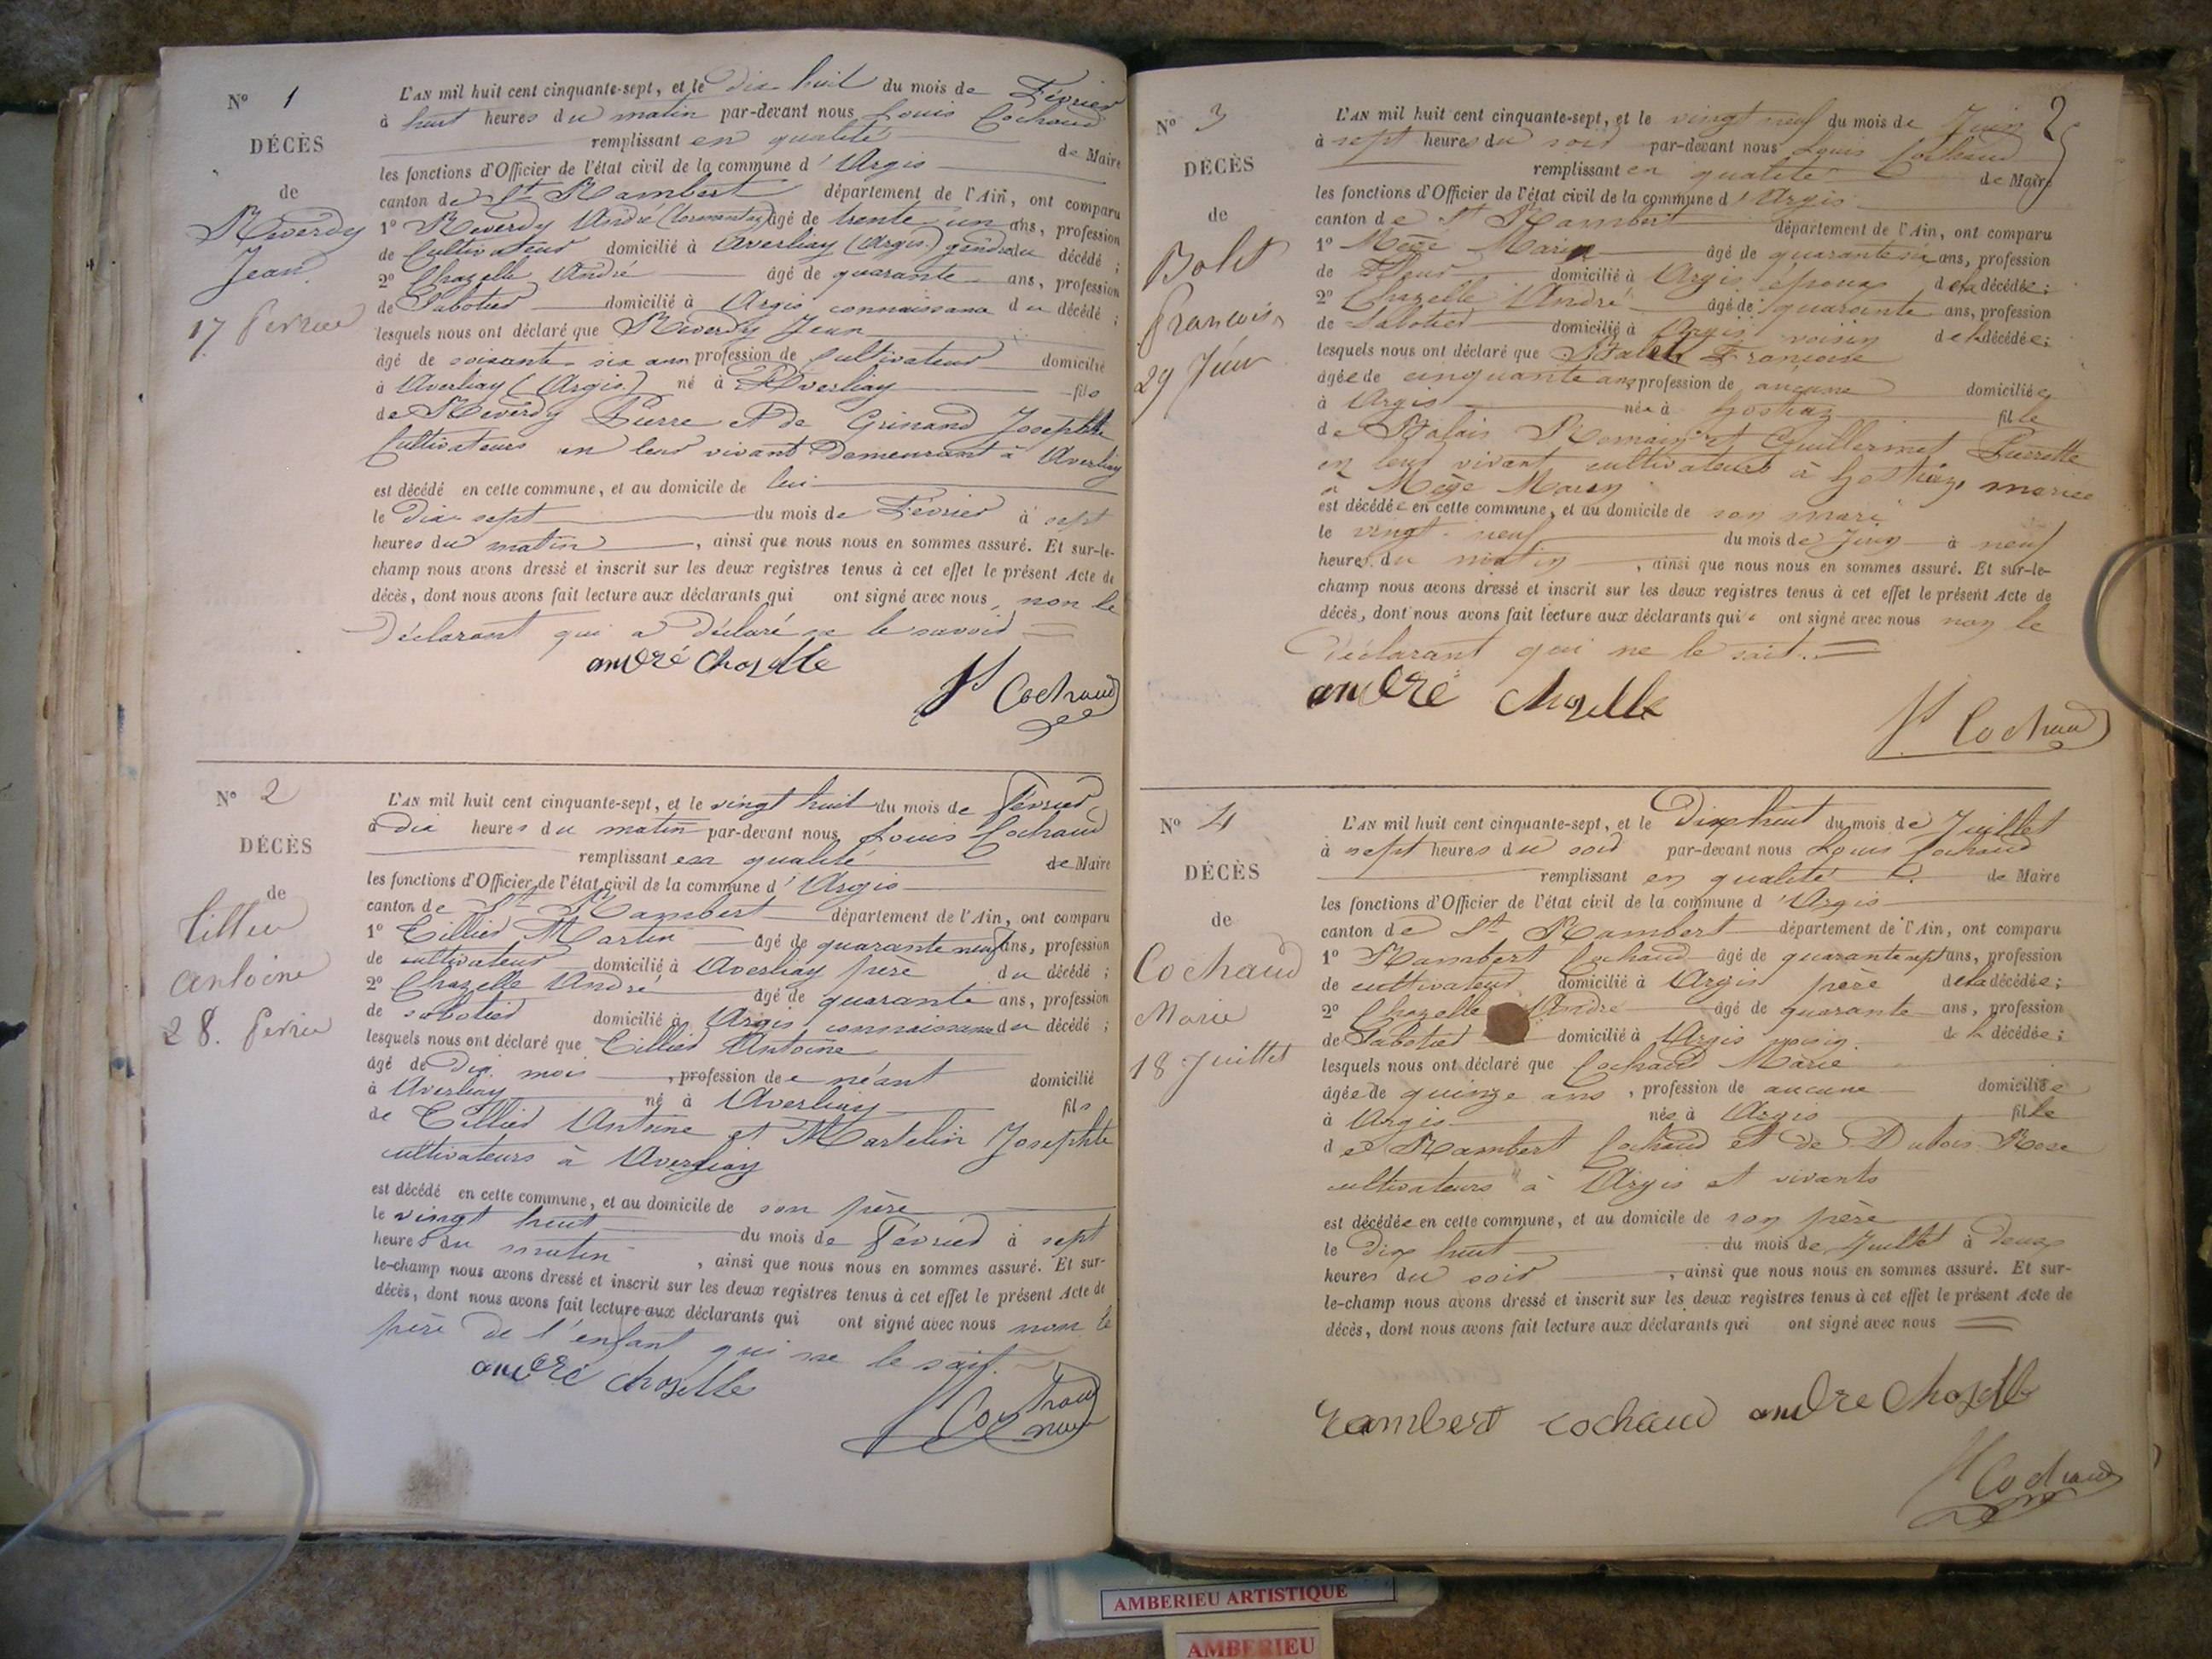 Nº 1
DÉCÈS
de
Réverdy
Jean
17 fevrier
L'AN mil huit cent cinquante-sept, et le Dix huit du mois de Février
à huit heures du matin par-devant nous Louis Cochaud
remplissant en qualité de Maire
les fonctions d'Officier de l'état civil de la commune d'Argis
canton de St Rambert département de l'Ain, ont comparu
1º Réverdy André âgé de trente un ans, profession
de Cultivateur domicilié à Averliay (Argis) gendre du décédé ;
2º Chazelle André âgé de quarante ans, profession
de Sabotier domicilié à Argis connaissance du décédé ;
lesquels nous ont déclaré que Réverdy Jean
âgé de soixante six ans profession de Cultivateur domicilié
à Averliay (Argis) né à Averliay fils
de Réverdy Pierre et de Grinand Josephte
Cultivateurs en leur vivant Demeurant à Averliay
est décédé en cette commune, et au domicile de lui
le Dix-sept du mois de Février à sept
heures du matin, ainsi que nous nous en sommes assuré. Et sur-le-
champ nous avons dressé et inscrit sur les deux registres tenus à cet effet le présent Acte de
décès, dont nous avons fait lecture aux déclarants qui ont signé avec nous, non le
Déclarant qui a Déclaré ne le savoir
andré chazelle
Cochaud
Nº 2
DÉCÈS
de
Tillier
antoine
28. fevrier
L'AN mil huit cent cinquante-sept, et le vingt huit du mois de Février
à dix heures du matin par-devant nous Louis Cochaud
remplissant en qualité de Maire
les fonctions d'Officier de l'état civil de la commune d'Argis
canton de St Rambert département de l'Ain, ont comparu
1º Tillier Martin âgé de quarante neuf ans, profession
de cultivateur domicilié à Averliay père du décédé ;
2º Chazelle André âgé de quarante ans, profession
de sabotier domicilié à Argis, connaissance du décédé ;
lesquels nous ont déclaré que Tillier Antoine
âgé de Dix mois, profession de néant domicilié
à Averliay né à Averliay fils
de Tillier Antoine et Martelin Josephte
cultivateurs à Averliay
est décédé en cette commune, et au domicile de son père
le vingt huit du mois de Février à sept
heures du matin, ainsi que nous nous en sommes assuré. Et sur-
le-champ nous avons dressé et inscrit sur les deux registres tenus à cet effet le présent Acte de
décès, dont nous avons fait lecture aux déclarants qui ont signé avec nous non le
père de l'enfant qui ne le sait.
andré chazelle
Cochaud
2
Nº 3
DÉCÈS
de
Francoise
29 Juin
L'AN mil huit cent cinquante-sept, et le vingt neuf du mois de Juin
à sept heures du soir par-devant nous Louis Cochaud
remplissant en qualité de Maire
les fonctions d'Officier de l'état civil de la commune d'Argis
canton de St Rambert département de l'Ain, ont comparu
1º âgé de quarante six ans, profession
de domicilié à Argis époux de la décédée ;
2º Chazelle André âgé de quarante ans, profession
de Sabotier domicilié à Argis voisin de la décédée ;
lesquels nous ont déclaré que Françoise
âgée de cinquante ans profession de aucune domiciliée
à Argis née à hostiaz fille
de Romain et Guillermet Pierrette
en leur vivant cultivateurs à hostiaz, mariée
à
est décédée en cette commune, et au domicile de son mari
le vingt-neuf du mois de Juin à neuf
heures du matin, ainsi que nous nous en sommes assuré. Et sur-le-
champ nous avons dressé et inscrit sur les deux registres tenus à cet effet le présent Acte de
décès, dont nous avons fait lecture aux déclarants qui ont signé avec nous non le
Déclarant qui ne le sait.
andré chazelle
Cochaud
Nº 4
DÉCÈS
de
Cochaud
Marie
18 Juillet
L'AN mil huit cent cinquante-sept, et le Dix huit du mois de Juillet
à sept heures du soir par-devant nous Louis Cochaud
remplissant en qualité de Maire
les fonctions d'Officier de l'état civil de la commune d'Argis
canton de St Rambert département de l'Ain, ont comparu
1º Rambert Cochaud âgé de quarante sept ans, profession
de cultivateur domicilié à Argis père de la décédée ;
2º Chazelle André âgé de quarante ans, profession
de Sabotier domicilié à Argis voisin de la décédée ;
lesquels nous ont déclaré que Cochaud Marie
âgée de quinze ans, profession de aucune domiciliée
à Argis née à Argis fille
de Rambert Cochaud et de Dubois Rose
cultivateurs à Argis et vivants
est décédée en cette commune, et au domicile de son père
le Dix huit du mois de Juillet à Deux
heures du soir, ainsi que nous nous en sommes assuré. Et sur-
le-champ nous avons dressé et inscrit sur les deux registres tenus à cet effet le présent Acte de
décès, dont nous avons fait lecture aux déclarants qui ont signé avec nous
rambert cochaud andre chazelle
Cochaud
AMBERIEU ARTISTIQUE
AMBERIEU